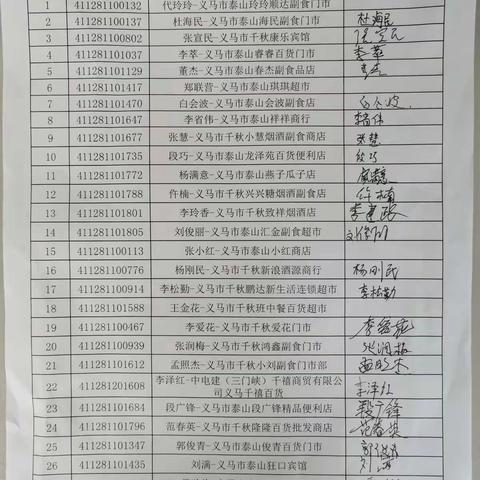 1 411281100132 代玲玲-义马市泰山玲玲顺达副食门市
2 411281100137 杜海民-义马市泰山海民副食门市 杜海民
3 411281100802 张宣民-义马市千秋康乐宾馆 张宣民
4 411281101037 李萃-义马市泰山睿睿百货门市 李萃
5 411281101129 董杰-义马市泰山春杰副食品店 董杰
6 411281101417 郑联营-义马市泰山琪琪超市
7 411281101470 白会波-义马市泰山会波副食店 白会波
8 411281101647 李省伟-义马市泰山祥祥商行 李省伟
9 411281101677 张慧-义马市千秋小慧烟酒副食商店 张慧
10 411281101735 段巧-义马市泰山龙泽苑百货便利店 段巧
11 411281101772 杨满意-义马市泰山燕子瓜子店
12 411281101788 仵楠-义马市千秋兴兴糖烟酒副食店 仵楠
13 411281101801 李玲香-义马市千秋致祥烟酒店 李建政
14 411281101805 刘俊丽-义马市泰山汇金副食超市 刘俊丽
15 411281100113 张小红-义马市泰山小红商店
16 411281100776 杨刚民-义马市千秋新浪酒源商行 杨刚民
17 411281100914 李松勤-义马市千秋鹏达新生活连锁超市 李松勤
18 411281101588 王金花-义马市千秋班中餐百货超市
19 411281100467 李爱花-义马市千秋爱花门市
20 411281100939 张润梅-义马市千秋鸿鑫副食门市 张润梅
21 411281101612 孟照杰-义马市千秋小刘副食门市部
22 411281201608 李泽红-中电建（三门峡）千禧商贸有限公司义马千禧百货 李泽红
23 411281101684 段广锋-义马市泰山段广锋精品便利店 段广锋
24 411281101796 范春英-义马市千秋隆隆百货批发商店 范春英
25 411281101347 郭俊青-义马市泰山俊青百货门市 郭俊青
26 411281101435 刘满-义马市泰山狂口宾馆 刘满